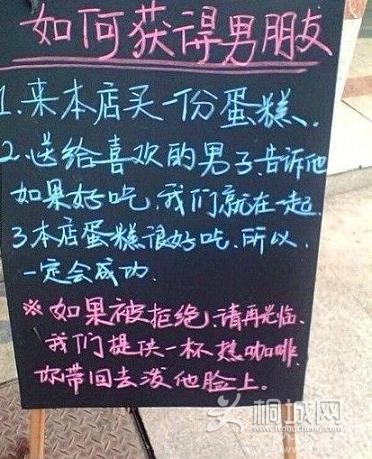 如何获得男朋友
1.来本店买一份蛋糕.
2.送给喜欢的男子,告诉他
如果好吃,我们就在一起.
3.本店蛋糕很好吃.所以.
一定会成功.
※如果被拒绝,请再光临.
我们提供一杯热咖啡.
你带回去泼他脸上.
桐城网
itongcheng.com